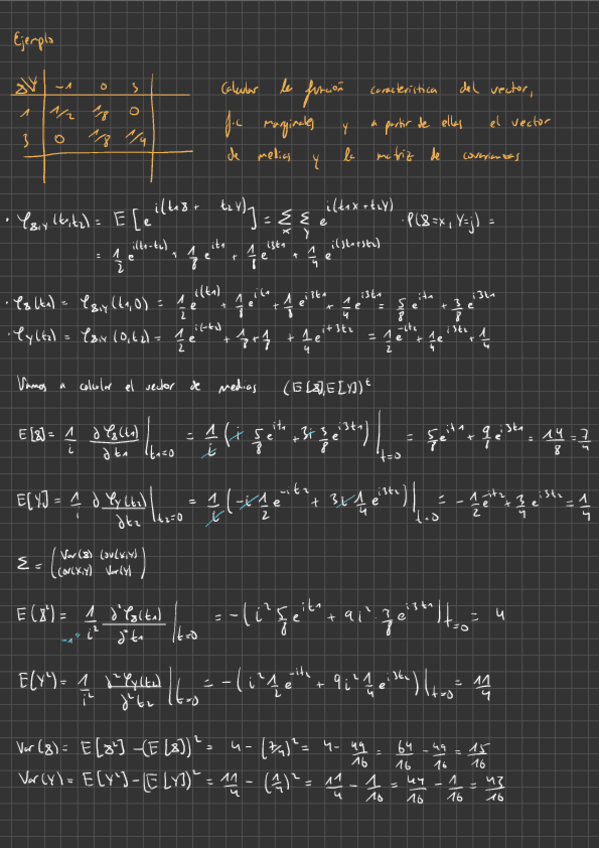 Ejemplo
X\Y -1 0 3
1 1/2 1/8 0
3 0 1/8 1/4
Calcular la función característica del vector,
f.c marginales y a partir de ellas el vector
de medias y la matriz de covarianzas
· φ_{X,Y}(t1,t2) = E[e^{i(t1X + t2Y)}] = Σ_x Σ_y e^{i(t1x+t2y)} · P(X=x, Y=j) =
= 1/2 e^{i(t1-t2)} + 1/8 e^{it1} + 1/8 e^{i3t1} + 1/4 e^{i(3t1+3t2)}
· φ_X(t1) = φ_{X,Y}(t1,0) = 1/2 e^{i(t1)} + 1/8 e^{it1} + 1/8 e^{i3t1} + 1/4 e^{i3t1} = 5/8 e^{it1} + 3/8 e^{i3t1}
· φ_Y(t2) = φ_{X,Y}(0,t2) = 1/2 e^{i(-t2)} + 1/8 + 1/8 + 1/4 e^{i+3t2} = 1/2 e^{-it2} + 1/4 e^{i3t2} + 1/4
Vamos a calcular el vector de medias (E[X],E[Y])^t
E[X] = 1/i ∂φ_X(t1)/∂t1 |_{t1=0} = 1/i (i 5/8 e^{it1} + 3i 3/8 e^{i3t1}) |_{t=0} = 5/8 e^{it1} + 9/8 e^{i3t1} = 14/8 = 7/4
E[Y] = 1/i ∂φ_Y(t2)/∂t2 |_{t2=0} = 1/i (-i 1/2 e^{-it2} + 3i 1/4 e^{i3t2}) |_{t=0} = -1/2 e^{-it2} + 3/4 e^{i3t2} = 1/4
Σ = (Var(X) Cov(X,Y)
Cov(X,Y) Var(Y))
E(X²) = 1/i² ∂²φ_X(t1)/∂²t1 |_{t=0} = -(i² 5/8 e^{it1} + 9i² · 3/8 e^{i3t1}) |_{t=0} = 4
-1
E(Y²) = 1/i² ∂²φ_Y(t2)/∂²t2 |_{t=0} = -(i² 1/2 e^{-it2} + 9i² 1/4 e^{i3t2}) |_{t=0} = 11/4
Var(X) = E[X²] - (E[X])² = 4 - (7/4)² = 4 - 49/16 = 64/16 - 49/16 = 15/16
Var(Y) = E[Y²] - (E[Y])² = 11/4 - (1/4)² = 11/4 - 1/16 = 44/16 - 1/16 = 43/16